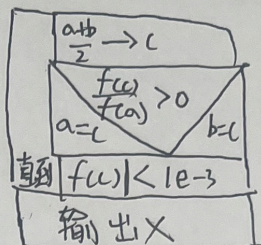 a+b/2 → c
f(c)/f(a) > 0
a=c b=c
直到 |f(c)| < 1e-3
输出 X